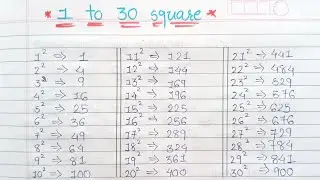 * 1 to 30 square *
1² ⇒ 1
2² ⇒ 4
3² ⇒ 9
4² ⇒ 16
5² ⇒ 25
6² ⇒ 36
7² ⇒ 49
8² ⇒ 64
9² ⇒ 81
10² ⇒ 100
11² ⇒ 121
12² ⇒ 144
13² ⇒ 169
14² ⇒ 196
15² ⇒ 225
16² ⇒ 256
17² ⇒ 289
18² ⇒ 324
19² ⇒ 361
20² ⇒ 400
21² ⇒ 441
22² ⇒ 484
23² ⇒ 529
24² ⇒ 576
25² ⇒ 625
26² ⇒ 676
27² ⇒ 729
28² ⇒ 784
29² ⇒ 841
30² ⇒ 900